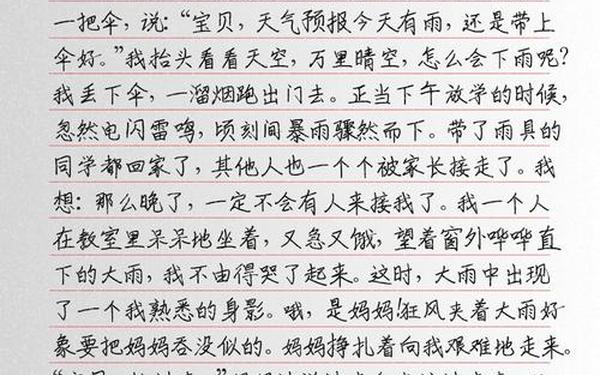 一把伞，说：“宝贝，天气预报今天有雨，还是带上
伞好。”我抬头看看天空，万里晴空，怎么会下雨呢？
我丢下伞，一溜烟跑出门去。正当下午放学的时候，
忽然电闪雷鸣，顷刻间暴雨骤然而下。带了雨具的
同学都回家了，其他人也一个个被家长接走了。我
想：那么晚了，一定不会有人来接我了。我一个人
在教室里呆呆地坐着，又急又饿，望着窗外哗哗直
下的大雨，我不由得哭了起来。这时，大雨中出现
了一个我熟悉的身影。哦，是妈妈！狂风夹着大雨好
象要把妈妈吞没似的。妈妈挣扎着向我艰难地走来。